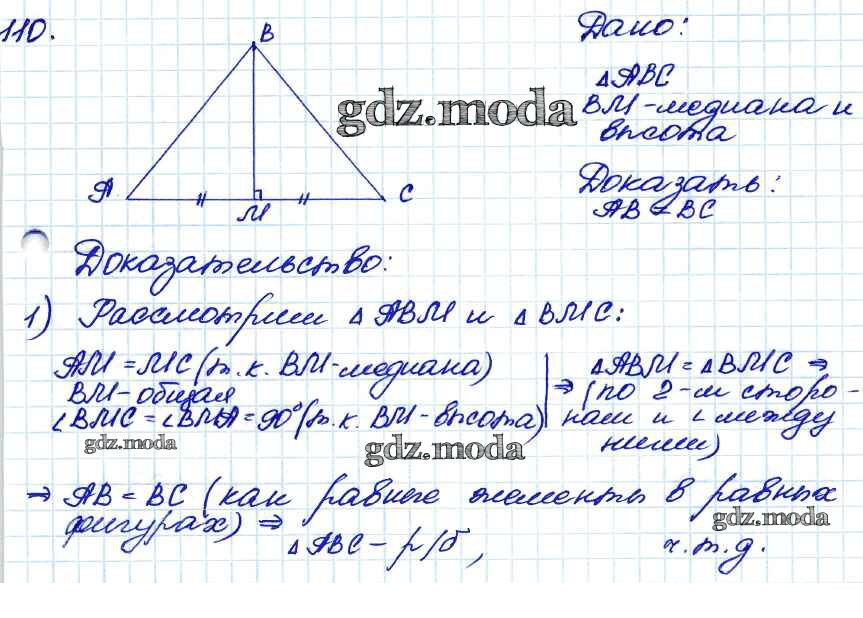 110.
B
A
M
C
gdz.moda
Дано:
△ABC
BM-медиана и
высота
Доказать:
AB = BC
Доказательство:
1) Рассмотрим △ABM и △BMC:
AM = MC (т.к. BM-медиана)
BM-общая
∠BMC = ∠BMA = 90° (т.к. BM-высота)
⇒ △ABM = △BMC ⇒
(по 2-м сторо-
нам и ∠ между
ними)
gdz.moda
gdz.moda
⇒ AB = BC (как равные элементы в равных
фигурах) ⇒
gdz.moda
△ABC - р/б, ч.т.д.